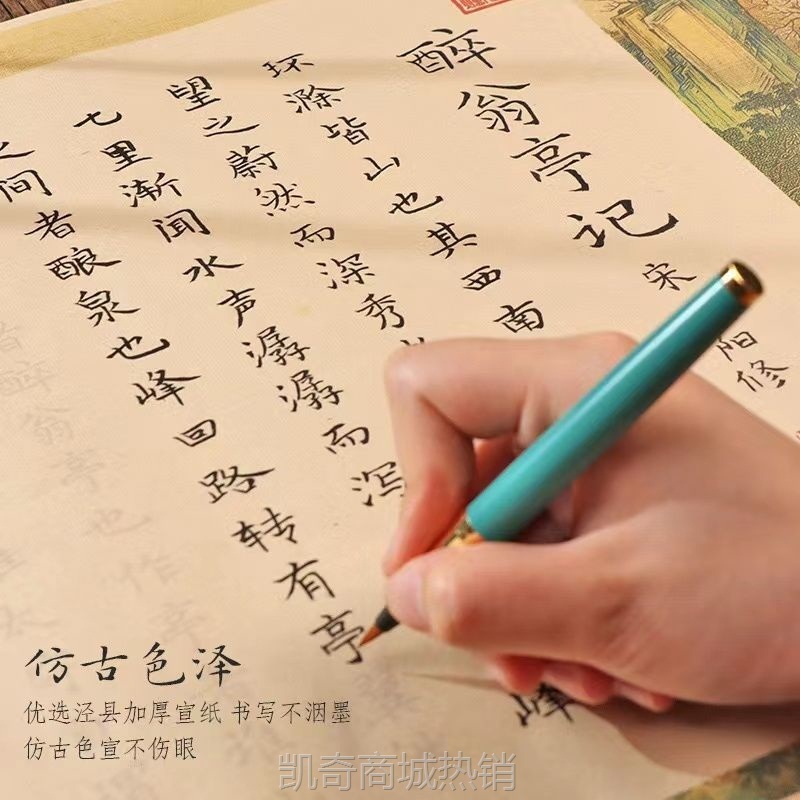 醉翁亭记
宋 阳修
环滁皆山也其西南
望之蔚然而深秀
七里渐闻水声潺潺而泻 峰
之间者酿泉也峰回路转有亭
者醉翁亭也作亭
仿古色泽
优选泾县加厚宣纸 书写不洇墨
仿古色宣不伤眼
凯奇商城热销